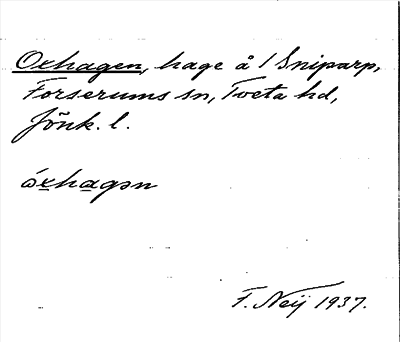 Oxhagen, hage å 1 Sniparp,
Forserums sn, Tveta hd,
Jönk. l.
óxhagən
F. Neij 1937.